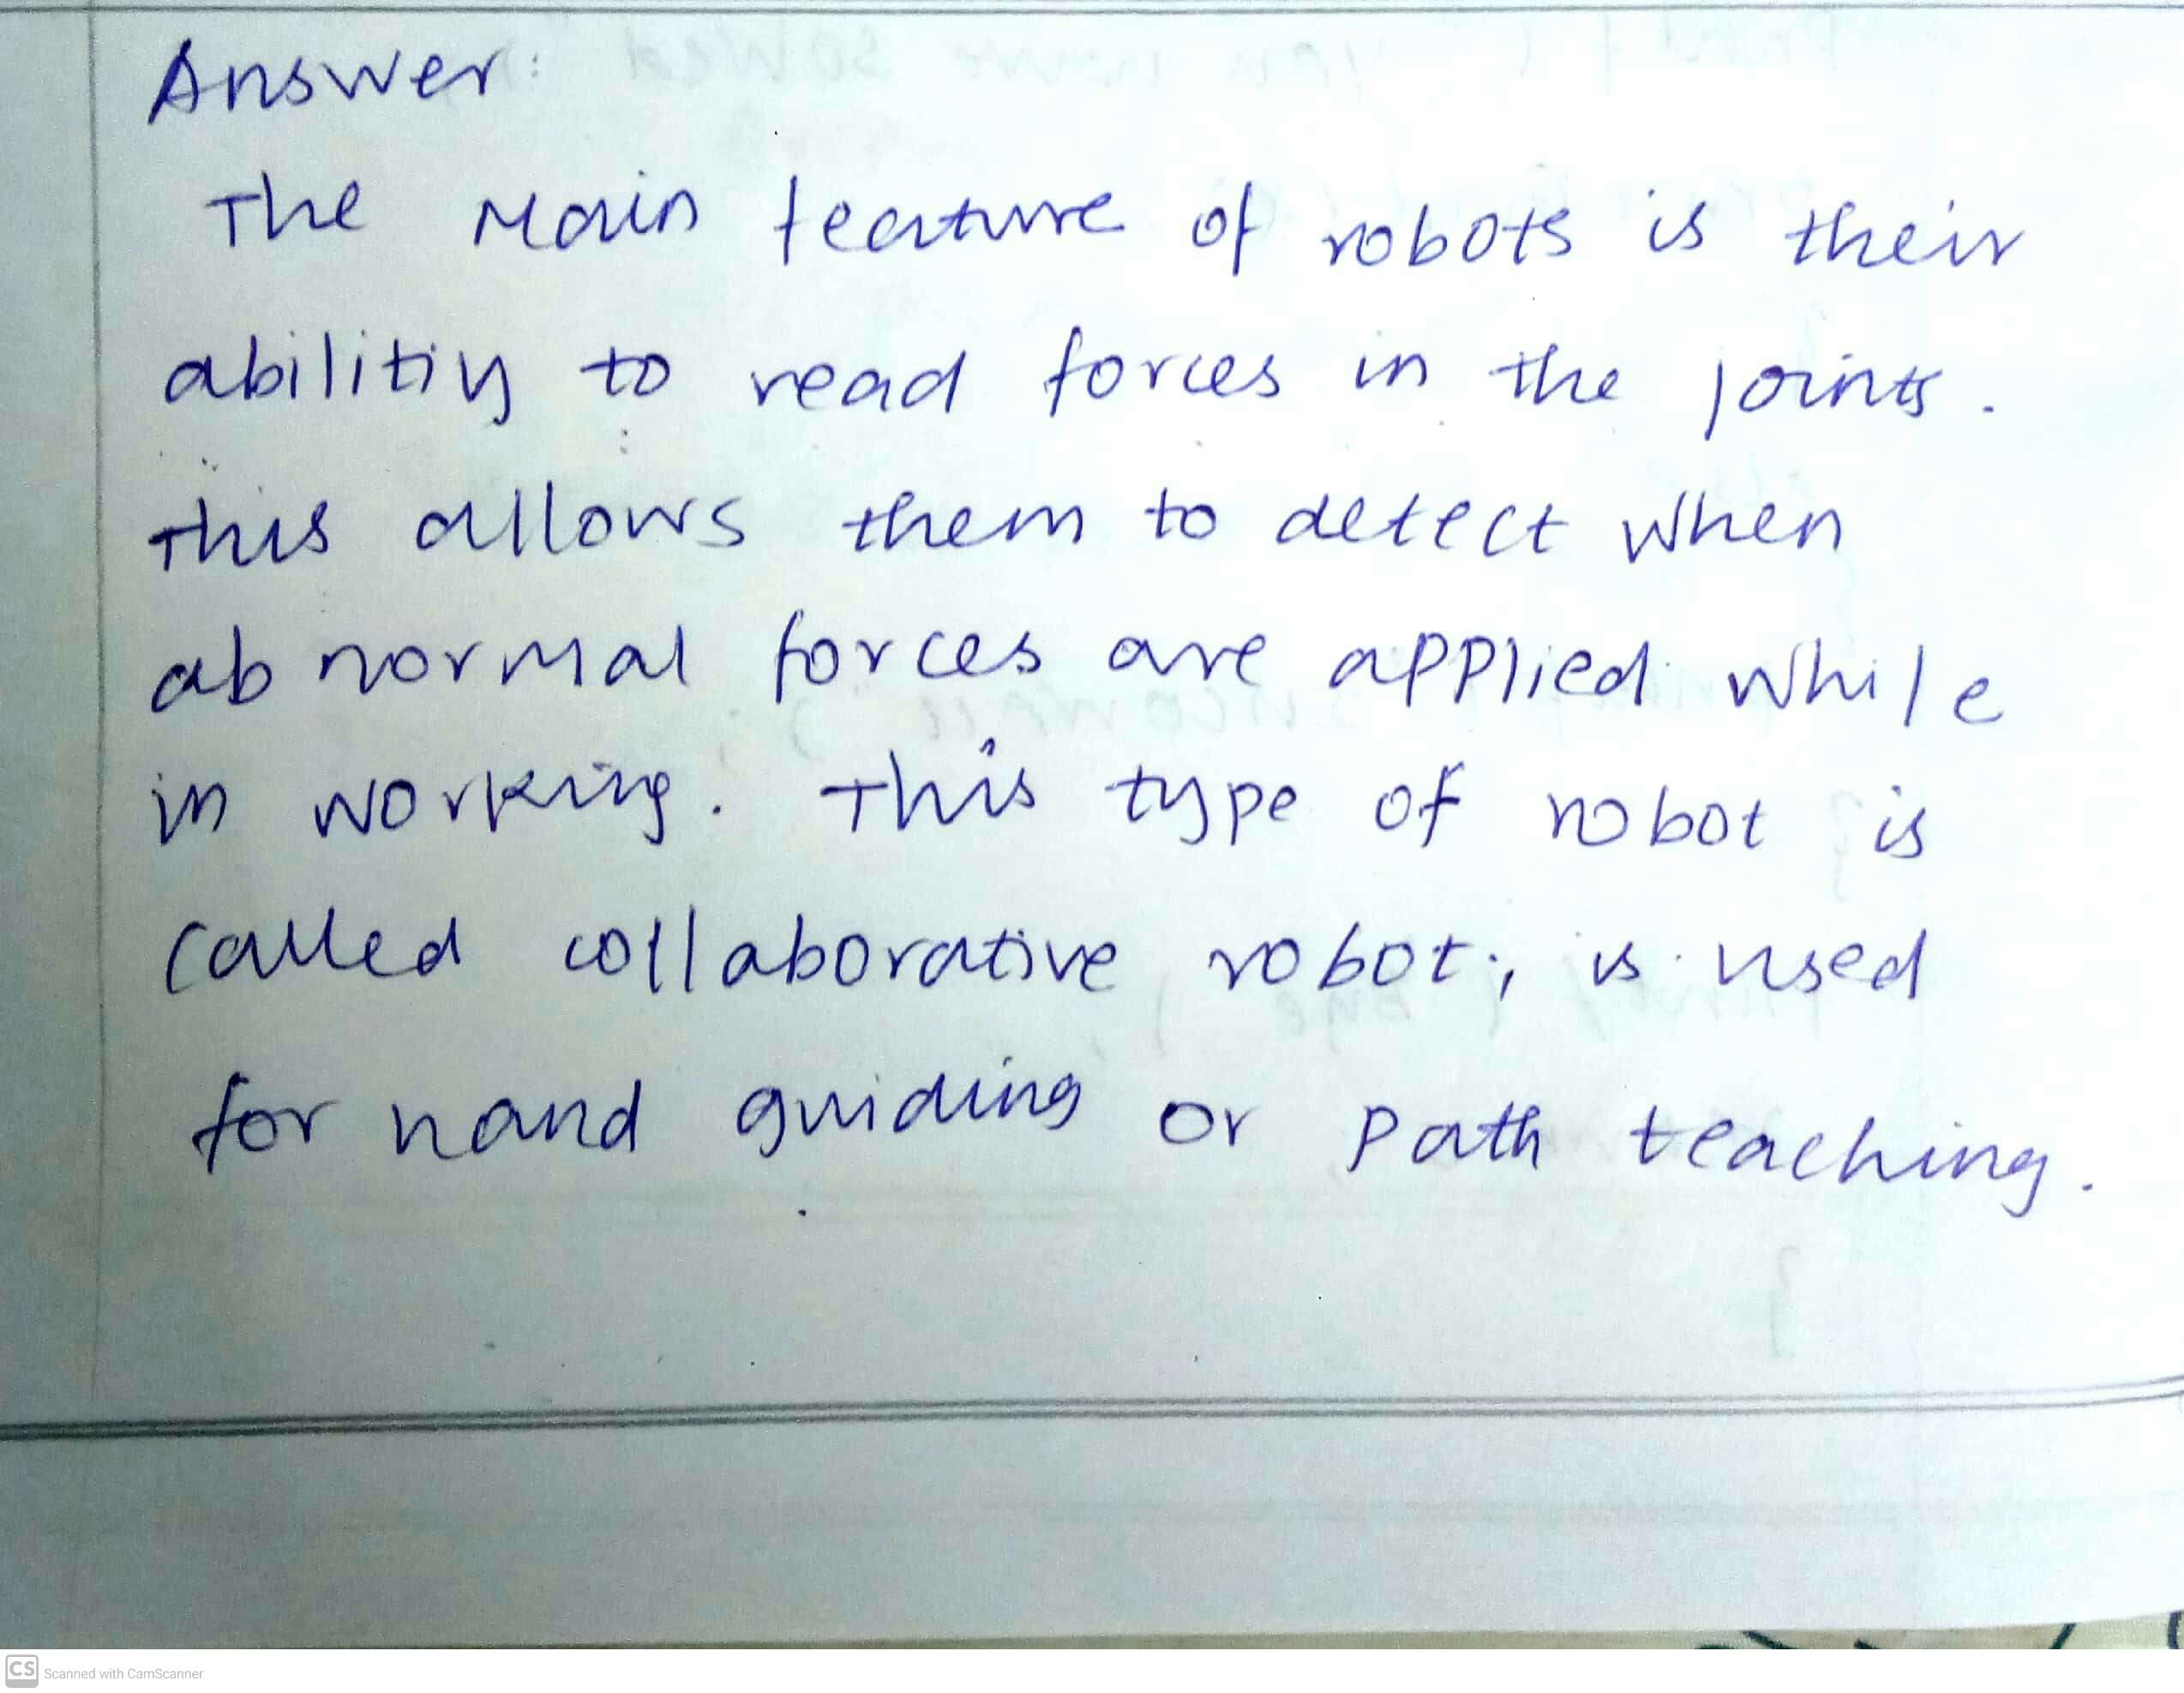 Answer:
The Main feature of robots is their
abilitiy to read forces in the joints.
This allows them to detect when
abnormal forces are applied while
in working. This type of robot is
called collaborative robot, is used
for hand guiding or path teaching.
CS Scanned with CamScanner